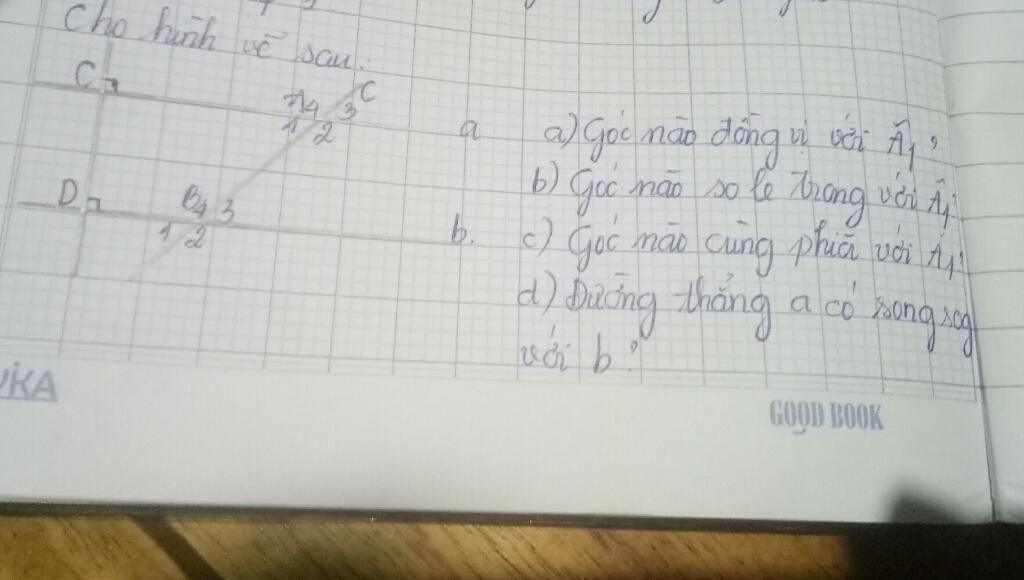 Cho hình vẽ sau:
C
A4 3 C
1 2
a
D
B4 3
1 2
b.
a) Góc nào đồng vị với Â1?
b) Góc nào so le trong với Â1?
c) Góc nào cùng phía với Â1?
d) Đường thẳng a có song sog
với b?
GOOD BOOK